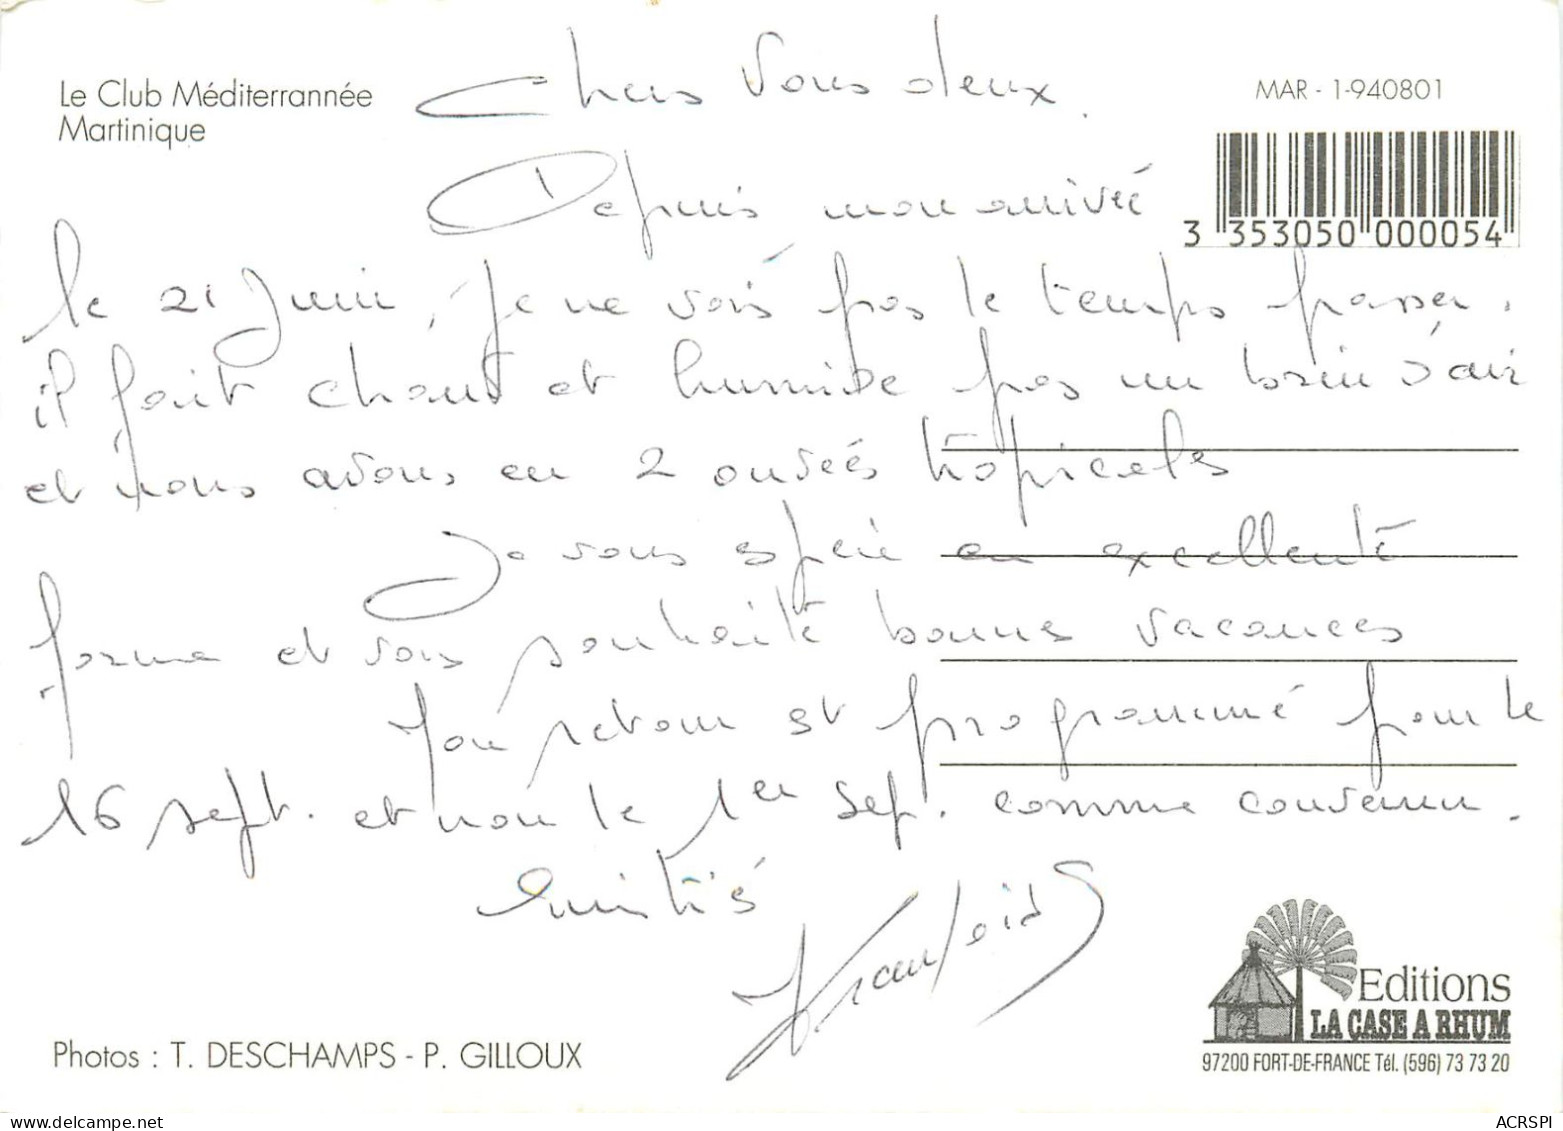 Le Club Méditerrannée
Martinique
MAR - 1-940801
3 353050 000054
Chers Vous deux.
Depuis mon arrivée
le 21 Juin, je ne vois pas le temps passer.
il fait chaud et humide pas un brin d'air
et nous avons eu 2 ondées tropicales
Je vous espère en excellente
forme et vous souhaite bonnes vacances
Mon retour est programmé pour le
16 sept. et non le 1er sep. comme convenu.
Amitiés
François
Editions
LA CASE A RHUM
97200 FORT-DE-FRANCE Tél. (596) 73 73 20
Photos : T. DESCHAMPS - P. GILLOUX
ACRSPI